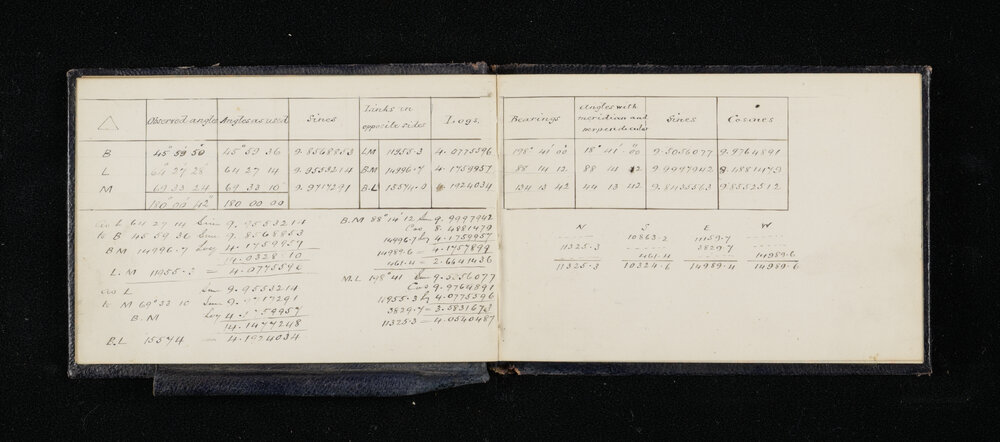 △ Observed angles Angles as used Sines Links in opposite sides Logs.
B 45° 59' 50" 45° 59 36 9.8568853 LM 11955.3 4.0775596
L 64 27 28 64 27 14 9.9553214 BM 14996.7 4.1759957
M 69 33 24 69 33 10 9.9717291 BL 15574.0 4.1924034
180° 00' 42" 180 00 00
As L 64 27 14 Sine 9.9553214
to B 45 59 36 Sine 9.8568853
BM 14996.7 Log 4.1759957
14.0328810
L.M 11955.3 = 4.0775596
As L Sin 9.9553214
to M 69° 33 10 Sine 9.9717291
B.M Log 4.1759957
14.1477248
B.L 15574 = 4.1924034
B.M 88° 14' 12 Sin 9.9997942
Cos 8.4881479
14996.7 Log 4.1759957
14989.6 = 4.1757899
461.4 = 2.6641436
M.L 198° 41 Sin 9.5056077
Cos 9.9764891
11955.3 Log 4.0775596
3829.7 = 3.5831673
11325.3 = 4.0540487
Bearings Angles with meridian and perpendicular Sines Cosines
198° 41' 00" 18° 41' 00" 9.5056077 9.9764891
88 14 12 88 14 12 9.9997942 8.4881479
134 13 42 44 13 42 9.8435563 9.8552512
N S E W
10863.2 11159.7
11325.3 3829.7
461.4 14989.6
11325.3 10324.6 14989.4 14989.6